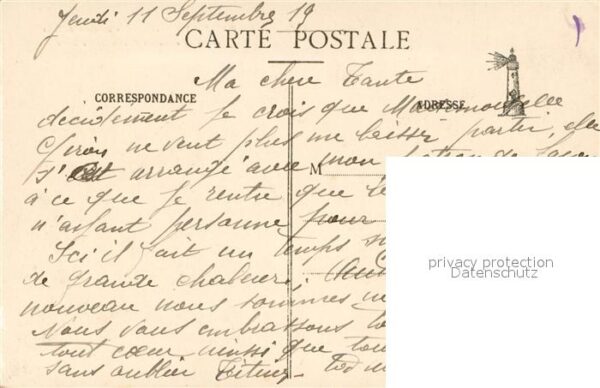 Jeudi 11 Septembre 19
CARTE POSTALE
Ma chere Tante
CORRESPONDANCE
ADRESSE
decidement je crois que Mademoiselle
ne veut plus me laisser partir, elle
s'est arrangé avec mon
M
à ce que je rentre que le
n'ayant personne pour
Ici il fait un temps
de grande chaleur.
nouveau nous sommes
Nous vous embrassons
tout cœur ainsi que
sans oublier
privacy protection
Datenschutz